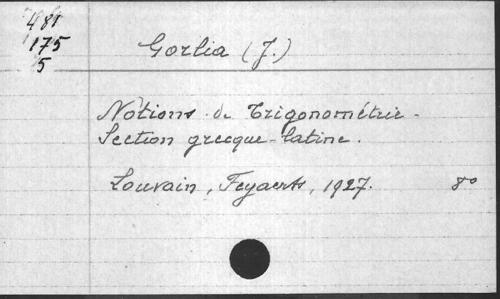 481
175
5
Gorlia (J.)
Notions de Trigonométrie.
Section grecque-latine.
Louvain, Feyaerts, 1927. 8°